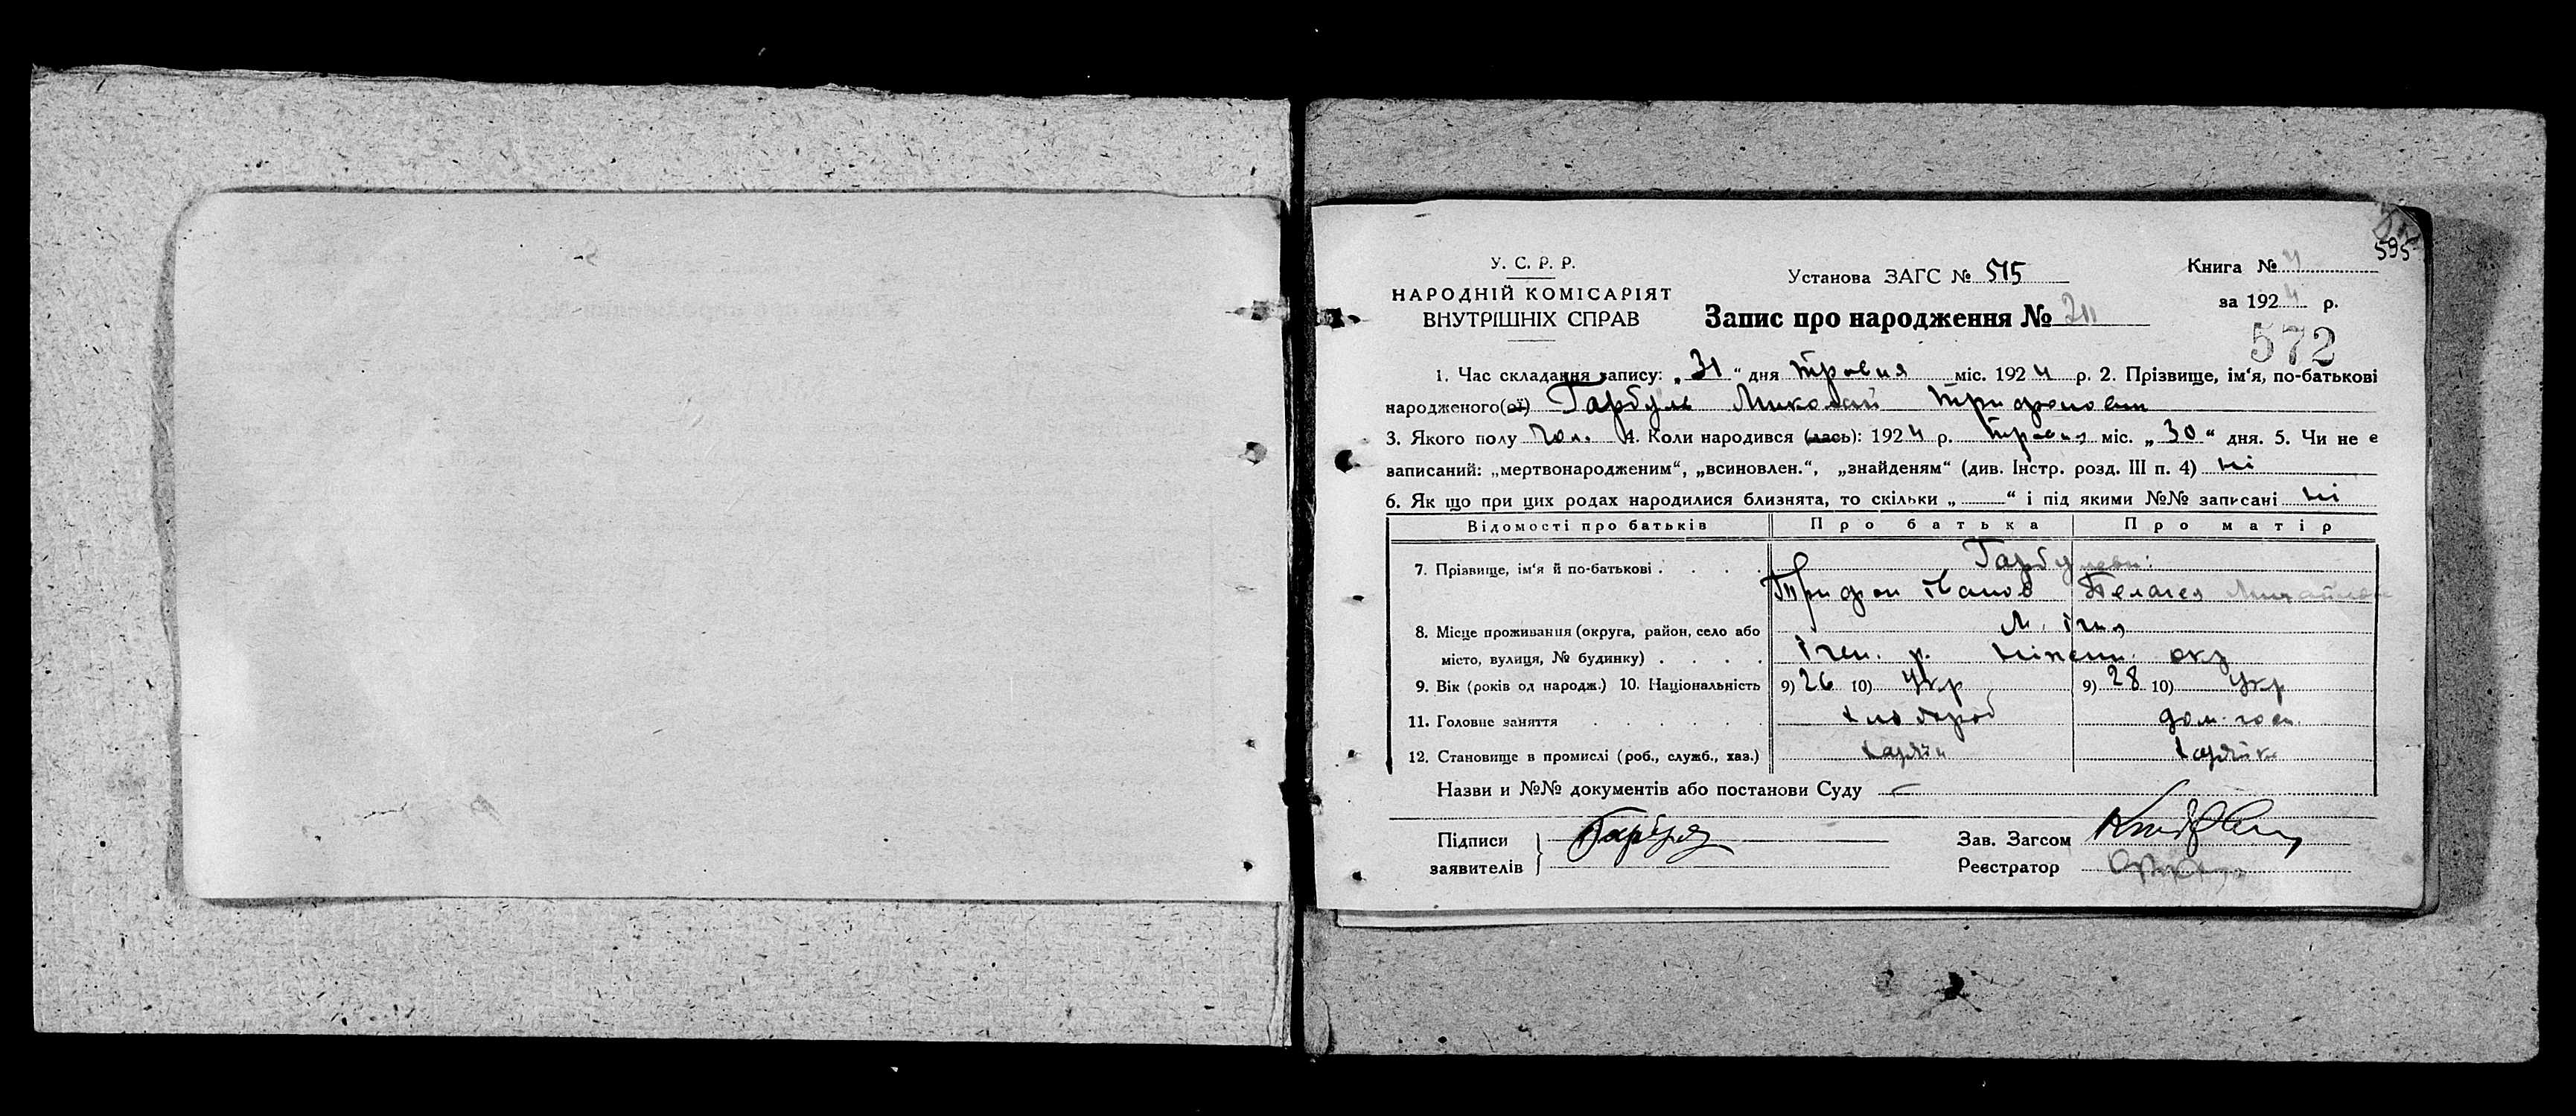 595
У. С. Р. Р.
НАРОДНІЙ КОМІСАРІЯТ
ВНУТРІШНІХ СПРАВ
Установа ЗАГС № 515
Запис про народження № 211
Книга № 4
за 1924 р.
572
1. Час складання запису: „31“ дня травня міс. 1924 р. 2. Прізвище, ім‘я, по-батькові
народженого(ої) Гарбуль Миколай Трифонович
3. Якого полу чол. 4. Коли народився (лась): 1924 р. травня міс. „30“ дня. 5. Чи не є
записаний: „мертвонародженим“, „всиновлен.“, „знайденям“ (див. Інстр. розд. III п. 4) ні
6. Як що при цих родах народилися близнята, то скільки „ “ і під якими №№ записані ні
Відомості про батьків Про батька Про матір
7. Прізвище, ім‘я й по-батькові . . . .
Трифон Іванов Пелагея
8. Місце проживання (округа, район, село або м. Ічня
місто, вулиця, № будинку) . . . . Ічен. р. Ніжен. окр
9. Вік (років од народж.) 10. Національність 9) 26 10) Укр 9) 28 10) Укр
11. Головне заняття . . . . . . хлібороб дом. госп.
12. Становище в промислі (роб., служб., хаз.) хазяїн хазяйка
Назви и №№ документів або постанови Суду —
Підписи
заявителів
Зав. Загсом
Реєстратор